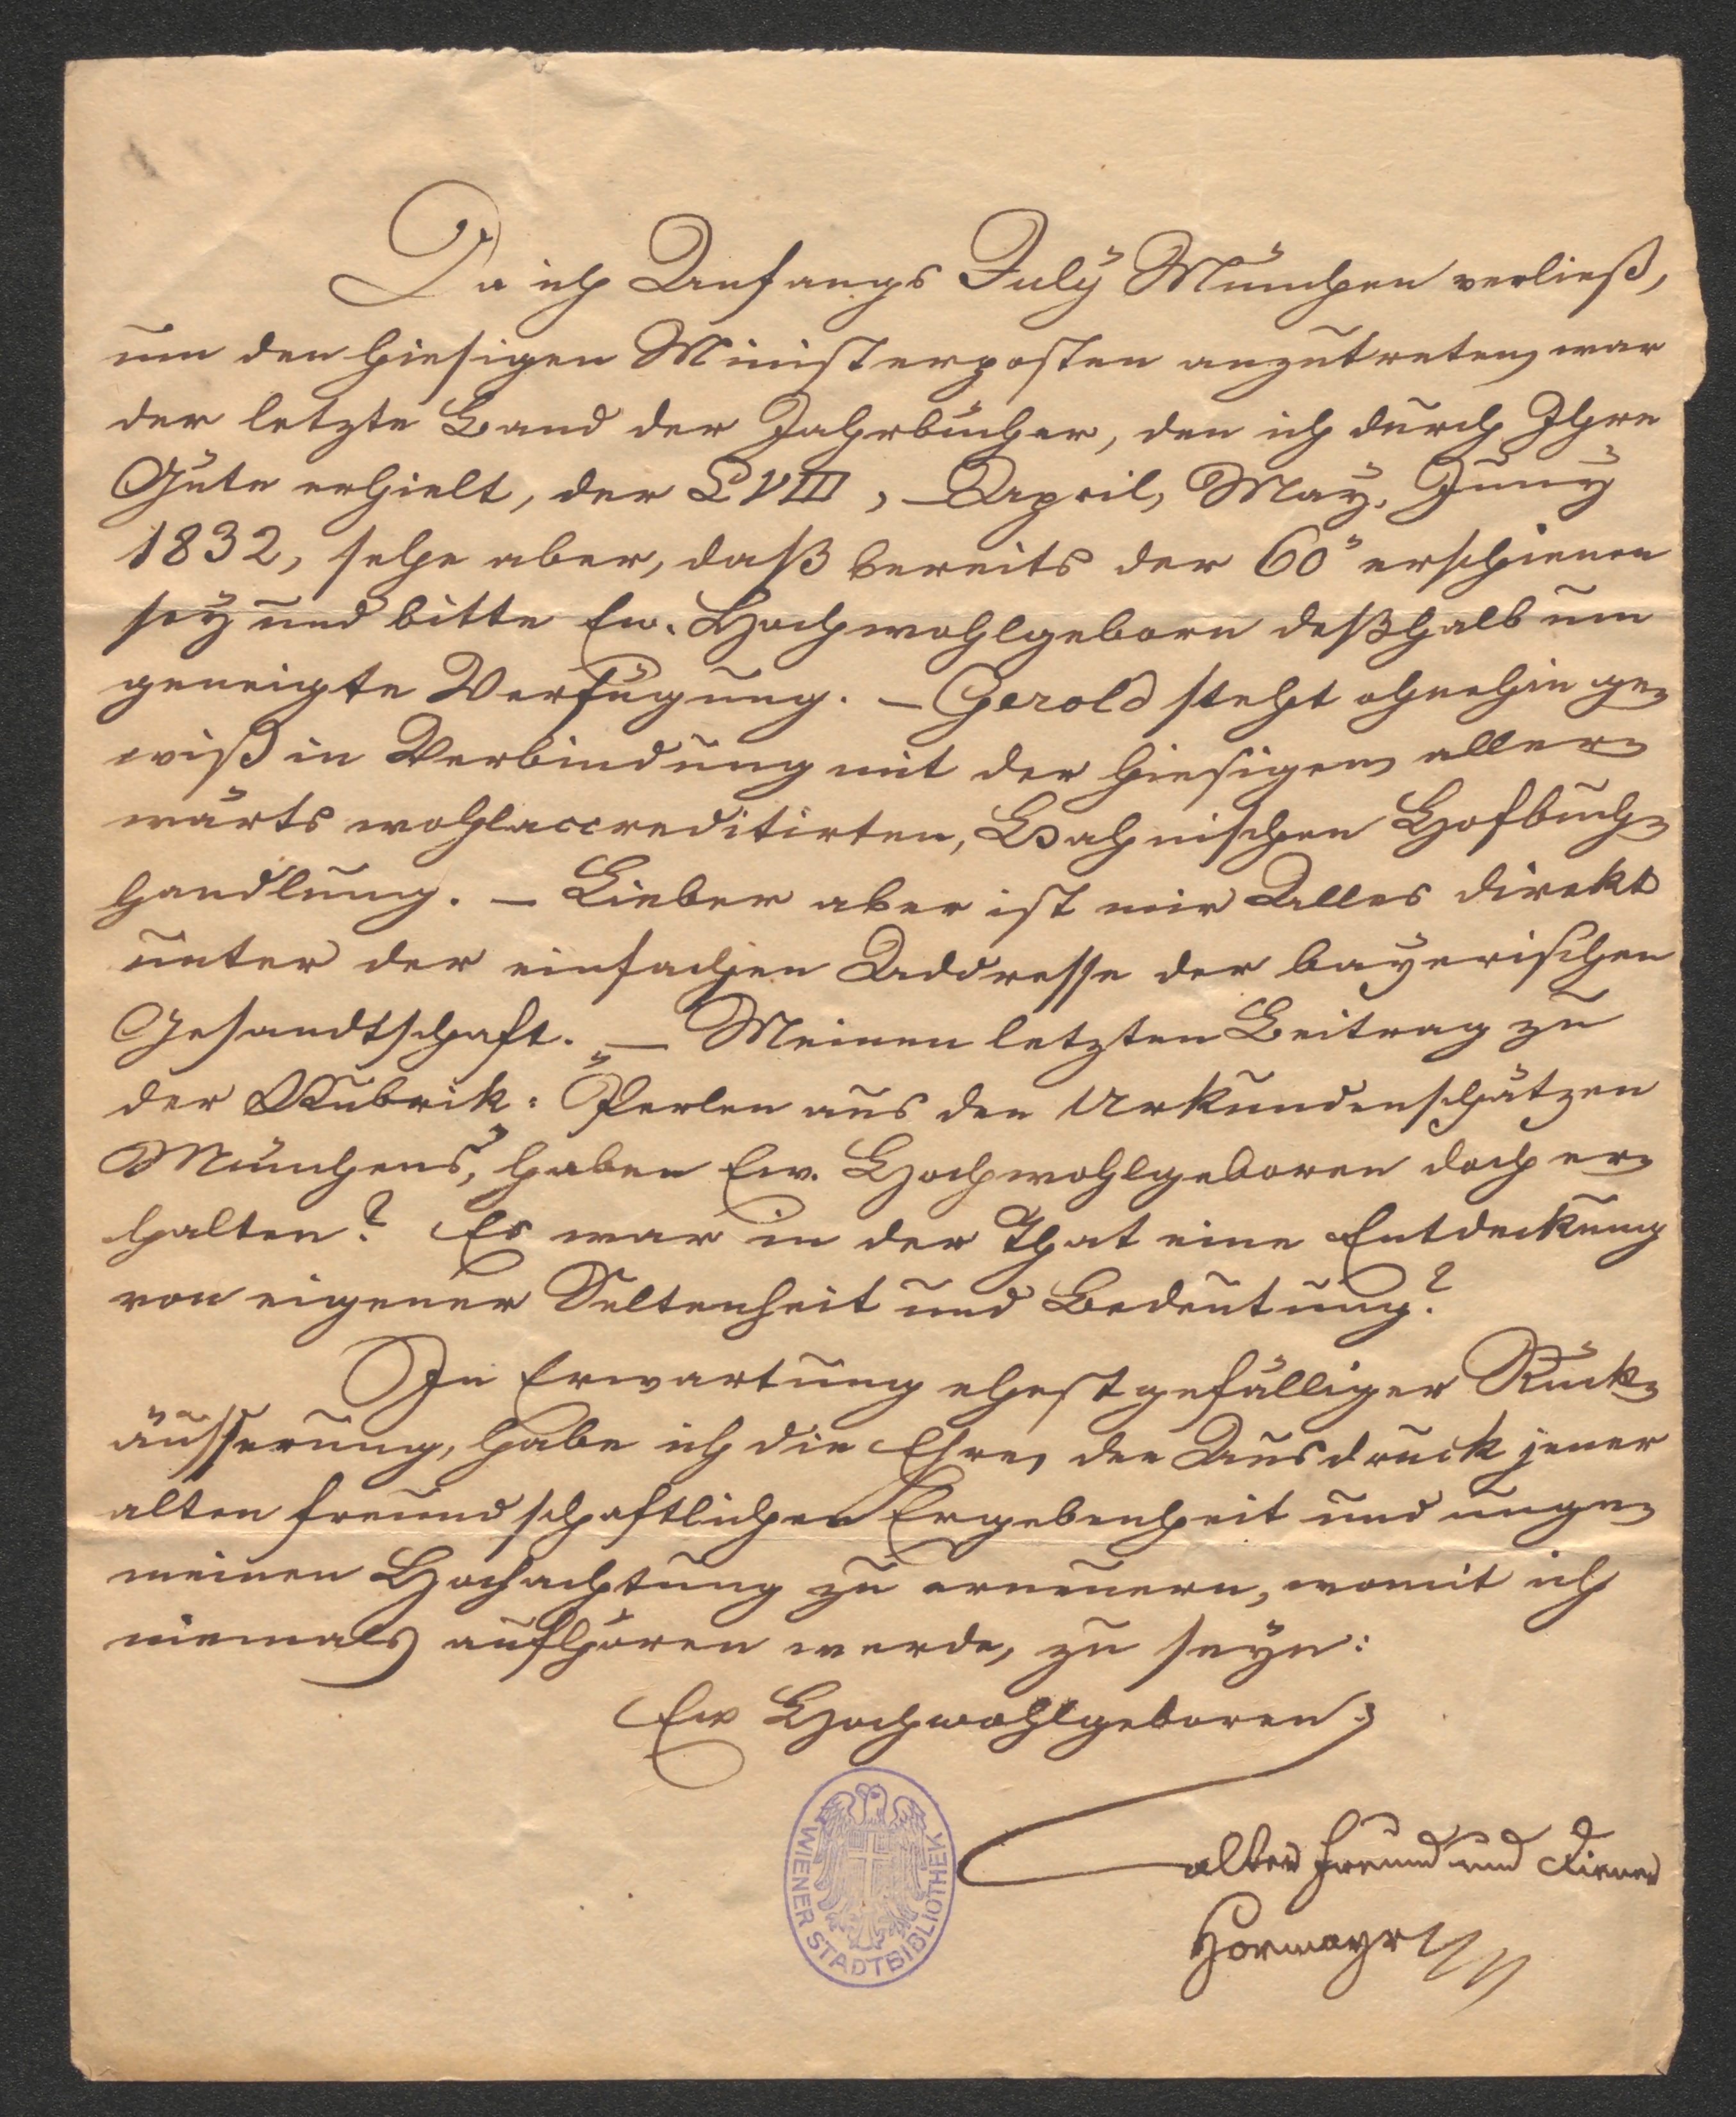 Da ich Anfangs July München verließ,
um den hiesigen Ministerposten anzutreten, war
der letzte Band der Jahrbücher, den ich durch Ihre
Güte erhielt, der LVIII, – April, May, Juny
1832, sehe aber, daß bereits der 60" erschienen
sey und bitte Ew. Hochwohlgeborn deßhalb um
geneigte Verfügung. – Gerold steht ohnehin ge=
wiß in Verbindung mit der hiesigen, aller=
wärts wohlaccreditirten, Hahnischen Hofbuch=
handlung. – Lieber aber ist mir Alles direkt
unter der einfachen Addresse der bayerischen
Gesandtschaft. – Meinen letzten Beitrag zu
der Rubrik: "Perlen aus den Urkundenschätzen
Münchens", haben Ew. Hochwohlgeboren doch er=
halten? Es war in der That eine Entdeckung
von eigener Seltenheit und Bedeutung?
In Erwartung ehest gefälliger Rück=
äusserung, habe ich die Ehre, den Ausdruck jener
alten freundschaftlichen Ergebenheit und unge=
meinen Hochachtung zu erneuern, womit ich
niemals aufhören werde, zu seyn:
Ew Hochwohlgeboren
alter Freund und Diener
Hormayr
WIENER STADTBIBLIOTHEK